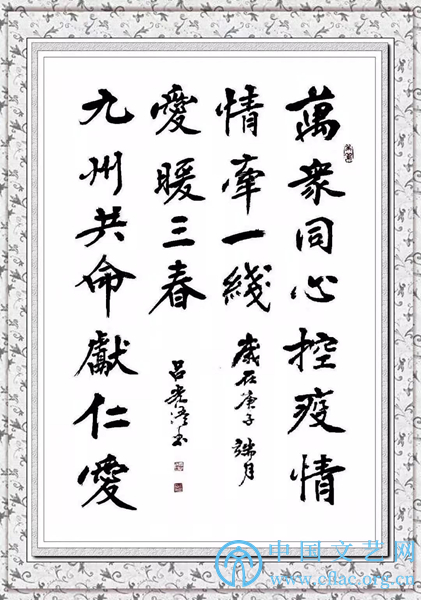 萬衆同心控疫情
情牽一綫
歲在庚子 月
九州共命獻仁愛
愛暖三春
吕光
中国文艺网
www.cflac.org.cn